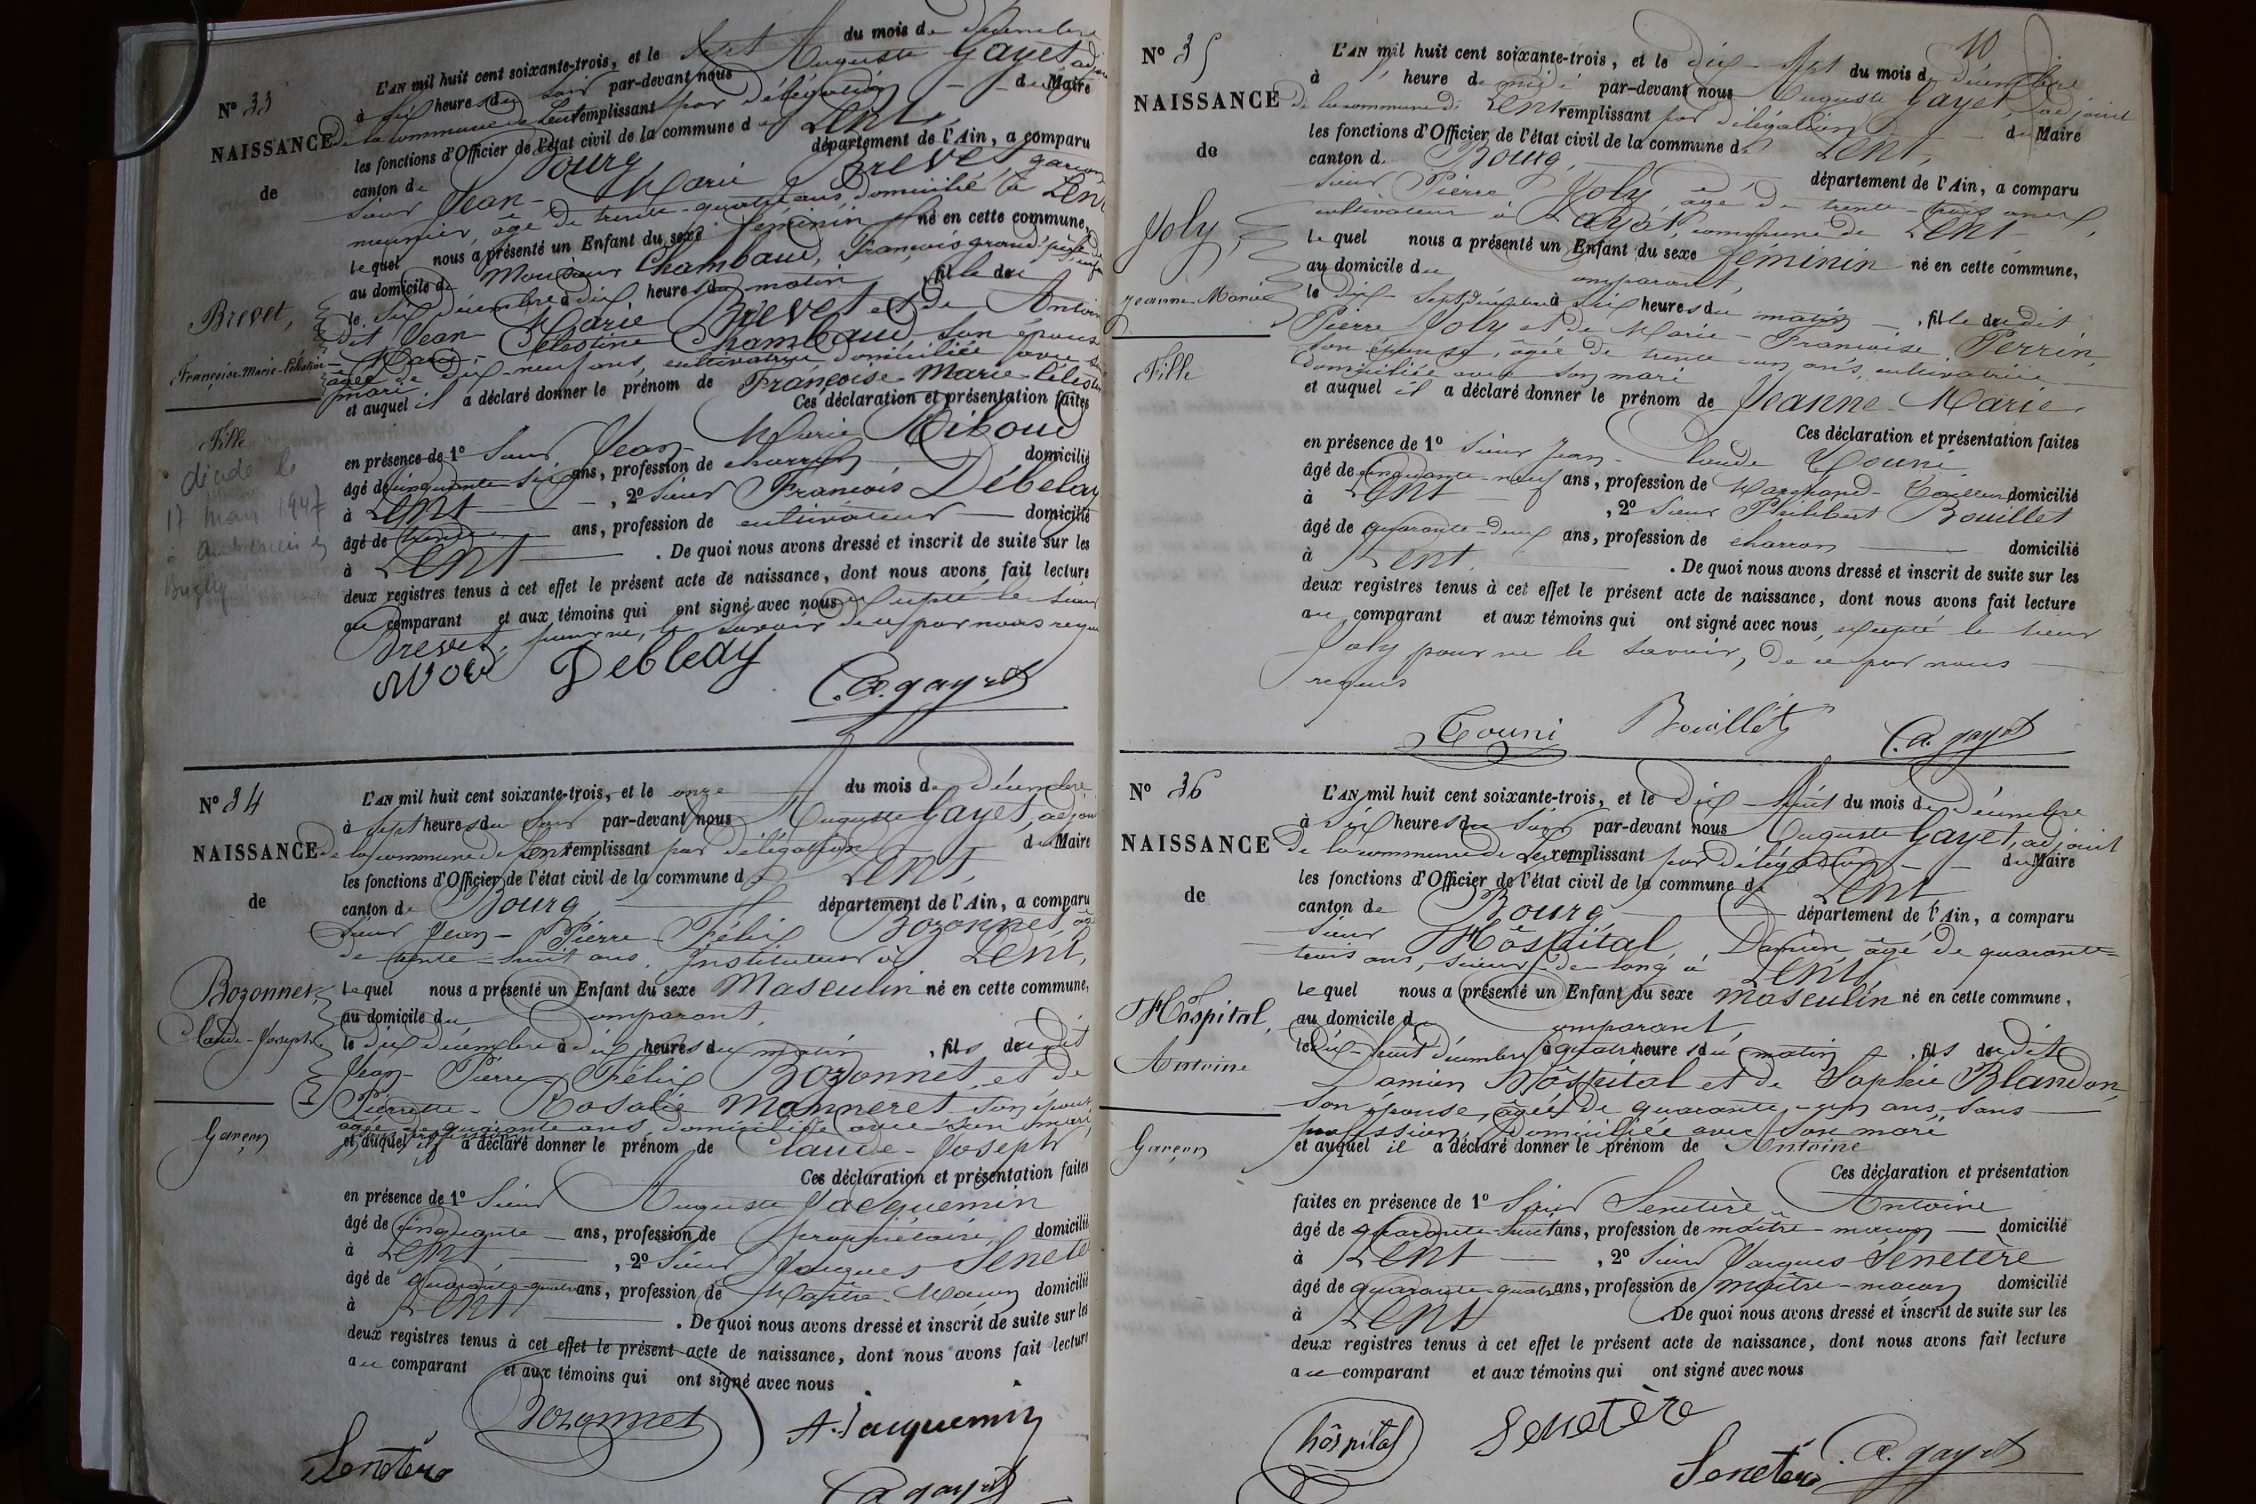 N° 33
NAISSANCE
de
Brevet,
Françoise-Marie-Célestine
Fille
décédée le
17 mars 1947
à Ambérieu en
Bugey
L'AN mil huit cent soixante-trois, et le Sept du mois de décembre
à six heures du soir par-devant nous Auguste Gayet adjoint
de la commune de Lent remplissant par délégation du Maire
les fonctions d'Officier de l'état civil de la commune de Lent,
canton de Bourg département de l'Ain, a comparu
Sieur Jean-Marie BREVET garçon
meunier, âgé de trente-quatre ans, domicilié à Lent
lequel nous a présenté un Enfant du sexe féminin né en cette commune,
au domicile de Monsieur Chambaud, François grand père
le six décembre à dix heures du matin, fille du
dit Jean-Marie BREVET et de Antoinette
Marie Célestine Chambaud, son épouse
âgée de dix-neuf ans, cultivatrice domiciliée avec son
mari
et auquel il a déclaré donner le prénom de Françoise-Marie-Célestine
Ces déclaration et présentation faites
en présence de 1° Sieur Jean-Marie Riboud
âgé de cinquante six ans, profession de charron domicilié
à Lent, 2° Sieur François Débelay
âgé de trente ans, profession de cultivateur domicilié
à Lent. De quoi nous avons dressé et inscrit de suite sur les
deux registres tenus à cet effet le présent acte de naissance, dont nous avons fait lecture
au comparant et aux témoins qui ont signé avec nous excepté le Sieur
Brevet, pour ne le savoir de ce par nous requis
Debleay
C. A. gayet
N° 34
NAISSANCE
de
Bozonnet
Claude-Joseph
Garçon
L'AN mil huit cent soixante-trois, et le onze du mois de décembre
à sept heures du soir par-devant nous Auguste Gayet, adjoint
de la commune de Lent remplissant par délégation du Maire
les fonctions d'Officier de l'état civil de la commune de Lent,
canton de Bourg département de l'Ain, a comparu
Sieur Jean-Pierre Félix Bozonnet, âgé
de trente-huit ans, Instituteur à Lent,
lequel nous a présenté un Enfant du sexe Masculin né en cette commune,
au domicile du Comparant,
le dix décembre à dix heures du matin, fils dudit
Jean-Pierre Félix Bozonnet, et de
Pierrette-Rosalie Monneret son épouse
âgée de quarante ans, domiciliée avec son mari,
et auquel il a déclaré donner le prénom de Claude-Joseph
Ces déclaration et présentation faites
en présence de 1° Sieur Auguste Jacquemin
âgé de cinquante ans, profession de propriétaire domicilié
à Lent, 2° Sieur Jacques Senetère
âgé de quarante-quatre ans, profession de Maître-Maçon domicilié
à Lent. De quoi nous avons dressé et inscrit de suite sur les
deux registres tenus à cet effet le présent acte de naissance, dont nous avons fait lecture
au comparant et aux témoins qui ont signé avec nous
Bozonnet A. Jacquemin
Senetère
C. A. gayet
10
N° 35
NAISSANCE
de
Joly,
Jeanne-Marie
Fille
L'AN mil huit cent soixante-trois, et le dix-sept du mois de décembre
à heure de midi par-devant nous Auguste Gayet, adjoint
de la commune de Lent remplissant par délégation du Maire
les fonctions d'Officier de l'état civil de la commune de Lent,
canton de Bourg, département de l'Ain, a comparu
Sieur Pierre Joly, âgé de trente-trois ans,
cultivateur à Layat, commune de Lent,
lequel nous a présenté un Enfant du sexe féminin né en cette commune,
au domicile du comparant,
le dix-sept décembre à six heures du matin, fille dudit
Pierre Joly et de Marie-Françoise Perrin,
son épouse, âgée de trente-un ans, cultivatrice
domiciliée avec son mari
et auquel il a déclaré donner le prénom de Jeanne-Marie.
Ces déclaration et présentation faites
en présence de 1° Sieur Jean-Claude Gouni
âgé de cinquante-neuf ans, profession de Marchand-Tailleur domicilié
à Lent, 2° Sieur Philibert Bouillet
âgé de quarante-deux ans, profession de charron domicilié
à Lent. De quoi nous avons dressé et inscrit de suite sur les
deux registres tenus à cet effet le présent acte de naissance, dont nous avons fait lecture
au comparant et aux témoins qui ont signé avec nous, excepté le Sieur
Joly pour ne le savoir, de ce par nous
requis
Gouni Bouillet C. A. gayet
N° 36
NAISSANCE
de
Hôspital,
Antoine
Garçon
L'AN mil huit cent soixante-trois, et le Dix-huit du mois de décembre
à six heures du soir par-devant nous Auguste Gayet, adjoint
de la commune de Lent remplissant par délégation du Maire
les fonctions d'Officier de l'état civil de la commune de Lent
canton de Bourg département de l'Ain, a comparu
Sieur Hôspital, Damien âgé de quarante-
trois ans, scieur-de-long à Lent,
lequel nous a présenté un Enfant du sexe masculin né en cette commune,
au domicile du comparant,
le dix-huit décembre à quatre heures du matin, fils dudit
Damien Hôspital et de Sophie Blandon,
son épouse, âgée de quarante-un ans, sans
profession, domiciliée avec son mari
et auquel il a déclaré donner le prénom de Antoine
Ces déclaration et présentation
faites en présence de 1° Sieur Senetère Antoine
âgé de quarante-huit ans, profession de maître-maçon domicilié
à Lent, 2° Sieur Jacques Senetère
âgé de quarante-quatre ans, profession de maître-maçon domicilié
à Lent De quoi nous avons dressé et inscrit de suite sur les
deux registres tenus à cet effet le présent acte de naissance, dont nous avons fait lecture
au comparant et aux témoins qui ont signé avec nous
hôspital Senetère
Senetère C. A. gayet